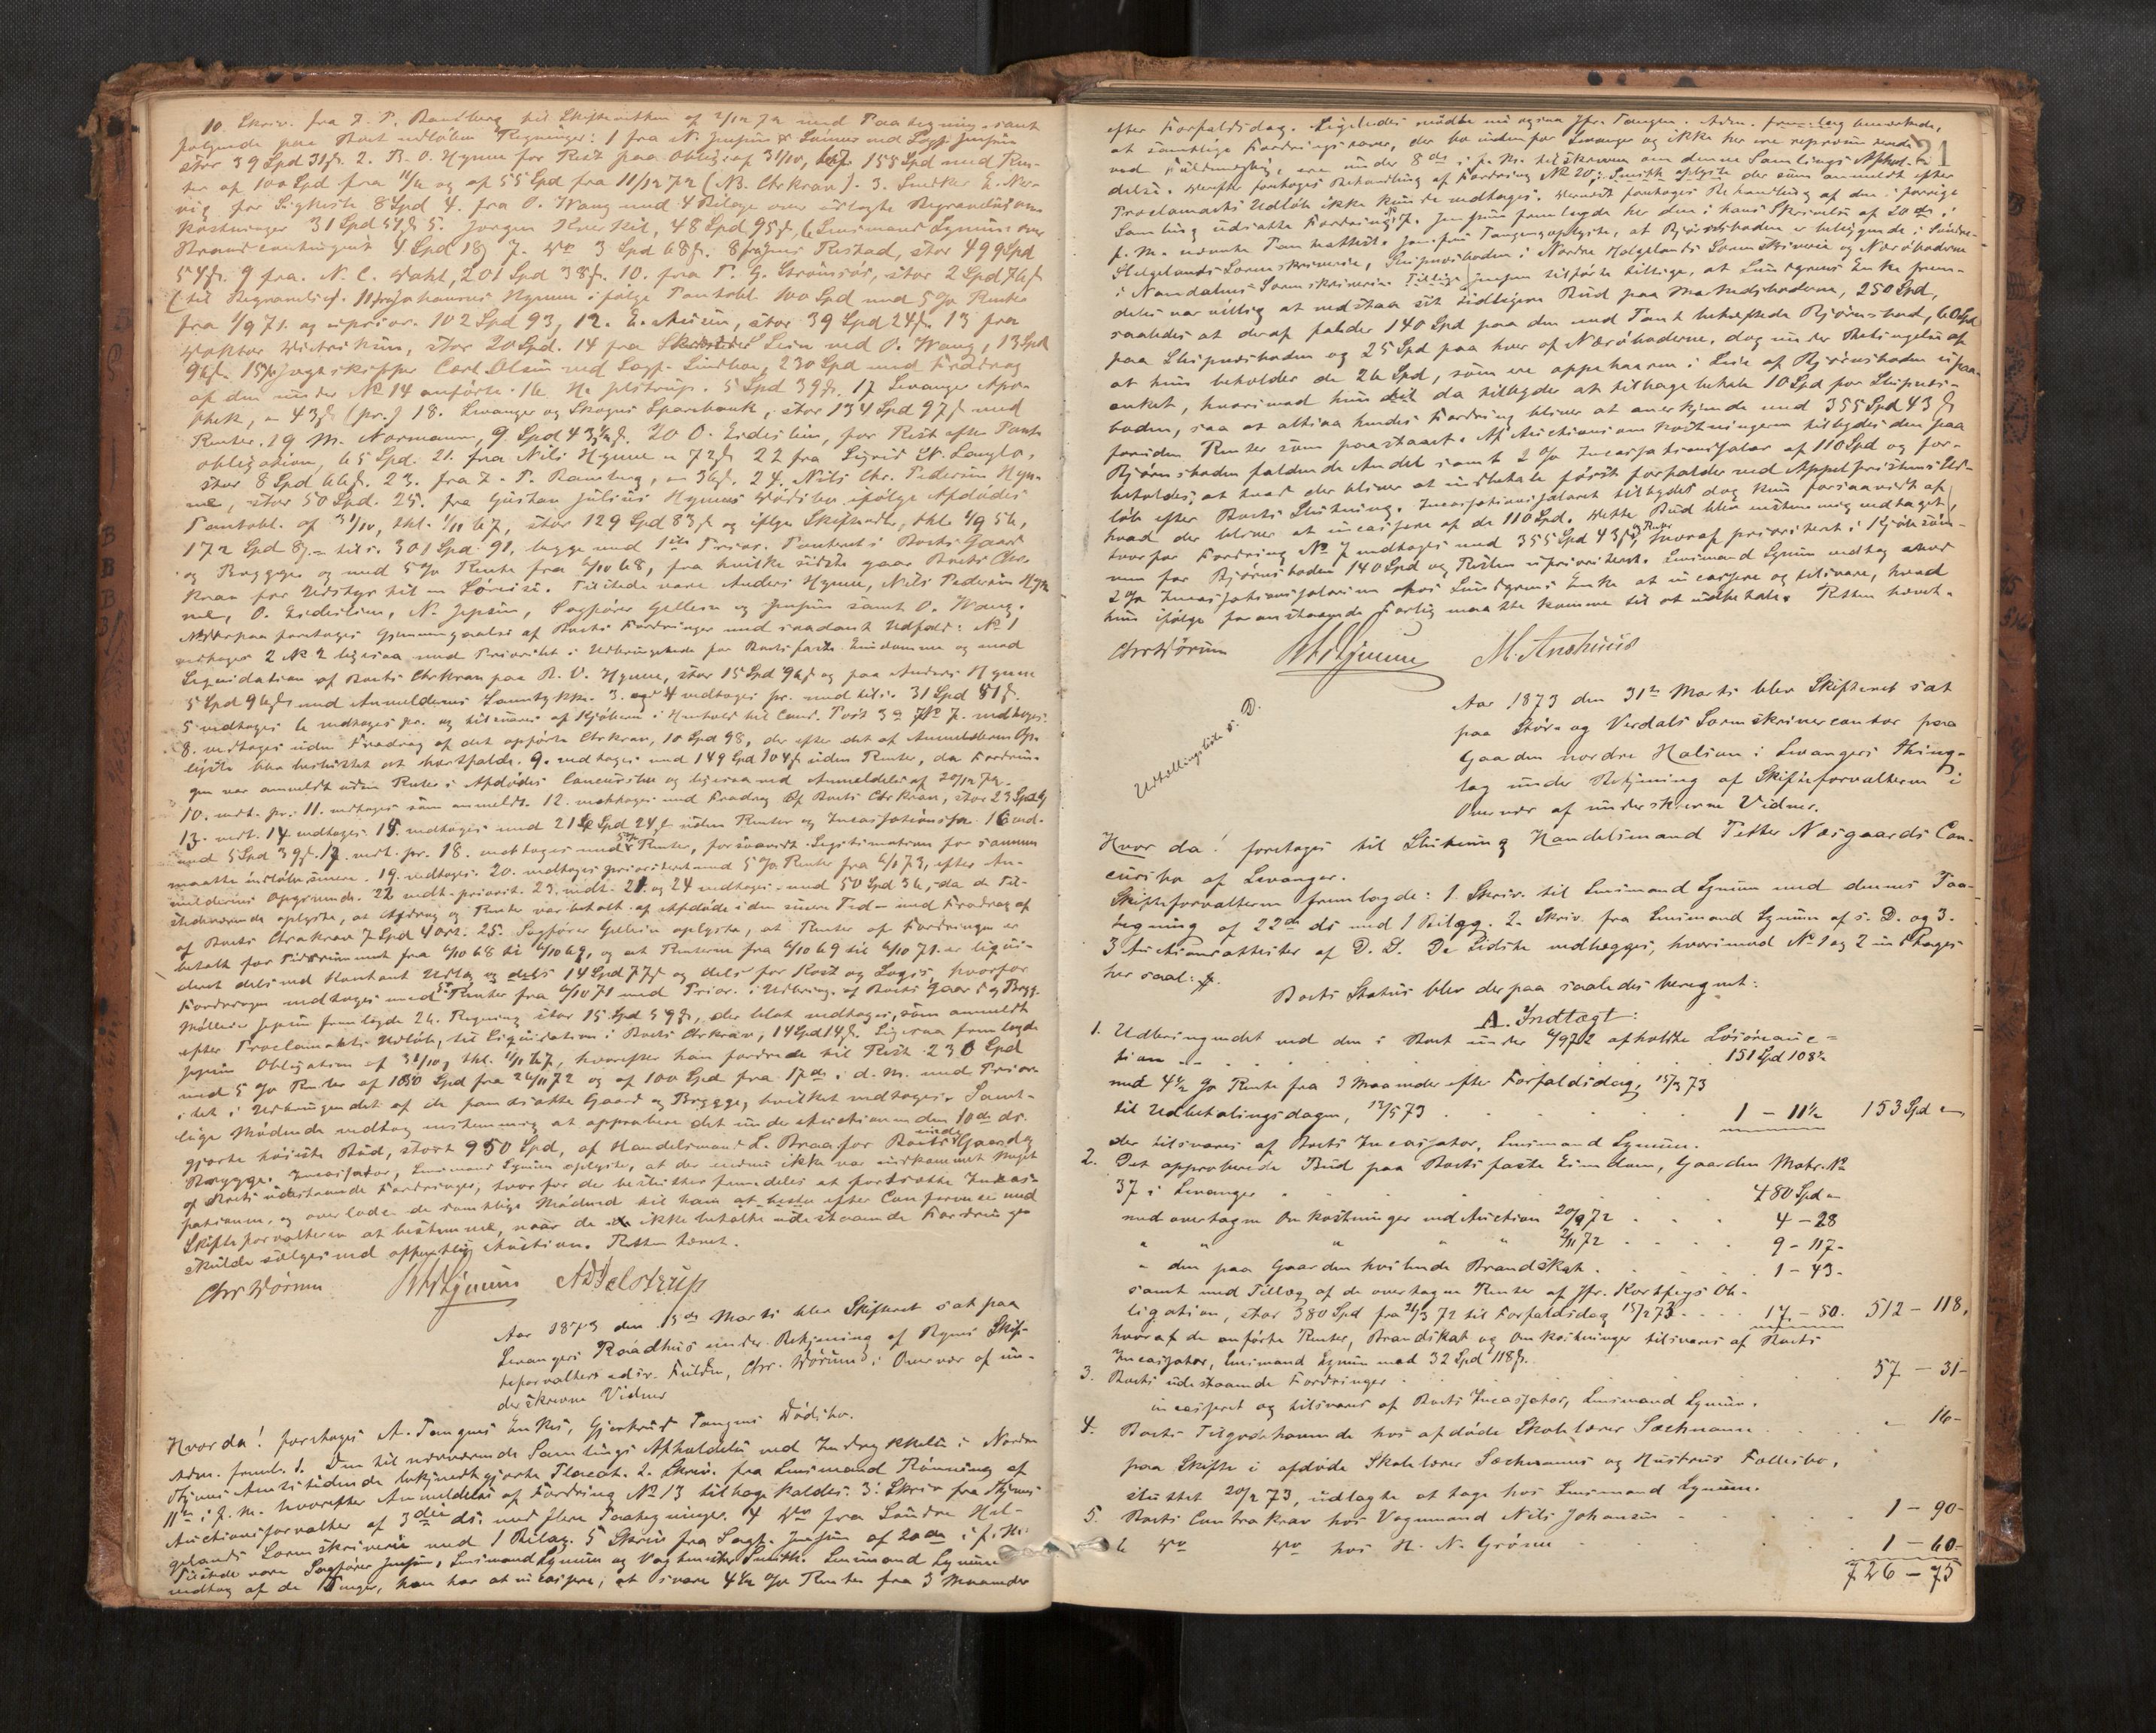 10. Skriv. fra J. P. Ramberg til Skifteretten af 2/12 72 med Paategning, samt
følgende paa Boet indløbne Regninger: 1 fra N. Jenssen & Sønner ved Sagf. Jenssen
stor 39 Spd 31 ß. 2. B. O. Hynne for Rest paa Oblig. af 31/10, 155 Spd med Ren-
ter af 100 Spd fra og af 55 Spd fra 11/12 72 (NB. Ctrkrav). 3. Snedker E. Ner-
vig for Ligkiste 8 Spd 4. fra O. Wang med 4 Bilage over udlagte Begravelsesom-
kostninger 31 Spd 51 ß 5. Jørgen 48 Spd 95 ß, 6 Lensmand Lynum over
Brandcontingent 4 Spd 18 ß 7. Do 3 Spd 68 ß. 8 Ristad, stor 499 Spd
54 ß. 9 fra N. C. Dahl, 201 Spd 38 ß. 10. fra P. G. Strømsør, stor 2 Spd 76 ß
(til Begravelsen). 11 fra Johannes Hynne ifølge Pantobl. 100 Spd med 5 % Rente
fra 1/9 71. og uprior. 102 Spd 93, 12. E. stor 39 Spd 24 ß. 13 fra
Doktor stor 20 Spd. 14 fra Lein ved O. Wang, 13 Spd
96 ß. 15 fra Jagtskipper Carl Olsen ved Sagf. Lindboe, 230 Spd med Fradrag
af den under No 14 anførte. 16 H. Jelstrup. 5 Spd 39 ß. 17 Levanger Apo-
thek, " 43 ß (pr.) 18. Levanger og Skogns Sparebank, stor 134 Spd 97 ß med
Renter. 19 M. Normann, 9 Spd 43 1/2 ß. 20 O. Eideslien, for Rest efter Pant-
obligation, 65 Spd. 21. fra Nils Hynne " 72 ß 22 fra Sigrid
stor 8 Spd 66 ß. 23. fra J. P. Ramberg, " 36 ß. 24. Nils Chr. Pedersen Hyn-
ne, stor 50 Spd. 25. fra Gustav Julius Hynnes Dødsbo ifølge Afdødes
Pantobl. af 31/10, thl. 1/11 67, stor 129 Spd 83 ß og ifølge Skifteudl., thl. 4/9 56,
172 Spd 8 ß = tils. 301 Spd 91, begge med 1ste Prior. Panteret i Boets Gaard
og Brygge og med 5 % Rente fra 6/10 68, fra hvilke sidste gaar Boets Ctr-
krav for Udstyr til en Søreise. Tilstede vare Anders Hynne, Nils Pedersen Hyn-
ne, O. Eideslien, N. Jepsen, Sagfører Gellein og Jenssen samt O. Wang.
Derpaa foretoges Gjennemgaaelse af Boets Fordringer med saadant Udfald: No 1
vedtoges 2 No 2 ligesaa med Prioritet i Udbringende for Boets faste Eiendomme og med
Liquidation af Boets Ctrkrav paa B. O. Hynne, stor 15 Spd 96 ß og paa Anders Hynne
5 Spd 96 ß med Anmelderens Samtykke. 3. og 4 vedtoges pr. med tils. 31 Spd 51 ß.
5 vedtoges 6 vedtoges pr. og tilsvares af Kjøberen i Henhold til Cond. Post 3 No 7. vedtoges.
8. vedtoges uden Fradrag af det opførte Ctrkrav, 10 Spd 98, der efter det af Anmelderen Op-
lyste blev besluttet at bortfalde. 9. vedtoges med 149 Spd 104 ß uden Renter, da Fordrin-
gen var anmeldt uden Renter i Afdødes Concursbo og ligesaa ved Anmeldelse af 20/12 72.
10. vedt. pr. 11. vedtoges som anmeldt. 12. vedtoges med Fradrag af Boets Ctrkrav, stor 23 Spd
13. vedt. 14 vedtoges. 15. vedtoges med 21 Spd 24 ß uden Renter og Incassationssal. 16 vedt.
med 5 Spd 39 ß. 17. vedt. pr. 18. vedtoges med 5 % Renter, forsaavidt Legitimation for samme
maatte indløbe senere. 19. vedtoges. 20. vedtoges prioriteret med 5 % Renter fra 6/1 73, efter An-
melderens Opgivende. 22 vedt. priorit. 23. vedt. 21 og 24 vedtoges, med 50 Spd 36, da de Til-
stedeværende oplyste, at Afdrag og Renter var betalt af Afdøde i den senere Tid – med Fradrag af
af Boets Ctrakrav 7 Spd 4 ort. 25. Sagfører Gellein oplyste, at Renter af Fordringen er
betalt for Tidsrummet fra 6/10 68 til 6/10 69, og at Renterne fra 6/10 69 til 6/10 71 er liqui-
deret dels ved Kontant Udlæg og dels 14 Spd 77 ß og dels for Kost og Logis, hvorfor
Fordringen vedtoges med 5 % Renter fra 6/10 71 med Prior. i Udbring. af Boets Gaard og Brygg.
Møller Jepsen fremlagde 26. Regning stor 15 Spd 59 ß, der blot vedtoges, som anmeldt
efter Proclamaets Udløb, til Liquidation i Boets Ctrkrav, 14 Spd 14 ß. Ligesaa fremlagde
Jepsen Obligation af 31/10, thl. 1/11 67, hvorefter han fordrede til Rest 230 Spd
med 5 % Renter af 130 Spd fra 26/11 72 og af 100 Spd fra 17de i d. M. med Prior-
itet i Udbringendet af de pantsatte Gaard og Brygge, hvilket vedtoges. Samt-
lige Mødende vedtog enstemmig at approbere det under Auctionen den 10de ds.
gjorte høieste Bud, stort 950 Spd, af Handelsmand L. Braa for Boets Gaard og
Brygge. Incassator, Lensmand Lynum oplyste, at der endnu ikke var indkommet Noget
af Boets udestaaende Fordringer, hvorfor der besluttes fremdeles at fortsætte Incas-
sationen, og overlode de samtlige Mødende til ham at efter Conference med
Skifteforvalteren at bestemme, naar de ikke betalte udestaaende Fordringer
skulde sælges ved offentlig Auction. Retten hævet.
Chr Dørum   Hynne   A Jelstrup
Aar 1873 den 13de Marts blev Skifteret sat paa
Levangers Raadhus under Betjening af Byens Skif-
teforvalters edsv. Fuldm., Chr. Dørum, i Overvær af un-
derskrevne Vidner
Hvor da! foretoges A. Tangens Enkes, Gjertrud Tangens Dødsbo.
Adm. freml. 1. Den til nærværende Samlings Afholdelse ved Indrykkelse i Nordre
Thjems Amtstidende bekjendtgjorte Placat. 2. Skriv. fra Lensmand Rønning af
11te i f. M. hvorefter Anmeldelse af Fordring No 13 tilbagekaldes. 3. Skriv fra Thjems
Auctionsforvalter af 3die ds. med flere Paategninger. 4 Do fra Søndre Hel-
gelands Sorenskriveri med 1 Bilag. 5 Skriv fra Sagf. Jenssen af 20de i f. M.
Tilstede vare Sagfører Jenssen, Lensmand Lynum og Vagtmester Smith. Lensmand Lynum
vedtog af de Penger, han har at incassere, at svare 4 1/2 % Renter fra 3 Maaneder
21
efter Forfaldsdag. Ligeledes mødte nu ogsaa Jfr. Tangen. Adm. bemærkede,
at samtlige Fordringshavere, der bo udenfor Levanger og ikke her ere repræsenterede
ved Fuldmægtig, ere under 8de i f. M. tilskrevne om denne Samlings Afhol-
delse. Derefter foretoges Behandling af Fordring No 20, Smith oplyste der som anmeldt efter
Proclamaets Udløb ikke kunde vedtages. Dernæst foretoges Behandling af den i forrige
Samling udsatte Fordring No 7. Jenssen fremlagde her den i hans Skrivelse af 20de i
f. M. nævnte Pantattest. Jomfru Tangen oplyste, at Bjørnsboden er beliggende i Søndre
Helgelands Sorenskriveri, Sleipnesboden i Nordre Helgelands Sorenskriveri og Nærøboderne
i Namdalens Sorenskriveri. Jenssen tilførte tillige, at Lundgrens Enke frem-
deles var villig at vedstaa sit tidligere Bud paa Markedsboderne, 250 Spd,
saaledes at deraf falder 140 Spd paa den med Pant behæftede Bjørnsbod, 60 Spd
paa Sleipnesboden og 25 Spd paa hver af Nærøboderne, dog under Betingelse af
at hun beholder de 26 Spd, som ere oppebaaren i Leie af Bjørnsboden upaa-
anket, hvorimod hun da tilbyder at tilbagebetale 10 Spd for Sleipnes-
boden, saa at altsaa hendes Fordring bliver at anerkjende med 355 Spd 43 ß
foruden Renter som paastaaet. Af Auctionsomkostningerne tilbydes den paa
Bjørnsboden faldende Andel samt 2 % Incassationssalær af 110 Spd og for-
beholdes, at hvad der bliver at indbetale først forfalder ved Appelfristens Ud-
løb efter Boets Slutning. Incassationssalæret tilbydes dog kun forsaavidt af
hvad der bliver at incassere af de 110 Spd. Dette Bud blev enstemmig vedtaget,
hvorfor Fordring No 7 vedtoges med 355 Spd 43 ß og Renter, hvoraf prioriteret i Kjøbesum-
men for Bjørnsboden 140 Spd og Resten uprioriteret. Lensmand Lynum vedtog mod
2 % Incassationssalarium hos Lundgrens Enke at incassere og tilsvare, hvad
hun ifølge foranstaaende Forlig maatte komme til at udbetale. Retten hævet.
Chr Dørum   Hynne   M. Anshuus
Udtællingsliste s. D.
Aar 1873 den 31te Marts blev Skifteret sat
paa Stør- og Verdals Sorenskrivercontor paa
Gaarden nordre Halsan i Levangers Thing-
lag under Betjening af Skifteforvalteren i
Overvær af underskrevne Vidner.
Hvor da! foretoges til Slutning Handelsmand Petter Næsgaards Con-
cursbo af Levanger.
Skifteforvalteren fremlagde: 1. Skriv. til Lensmand Lynum med dennes Paa-
tegning af 22de ds med 1 Bilag. 2. Skriv. fra Lensmand Lynum af s. D. og 3.
3 Auctionsattester af D. D. De Sidste vedlægges, hvorimod No 1 og 2 indtages
her saal:
Boets Status blev derpaa saaledes beregnet:
A. Indtægt:
1. Udbringendet ved den i Boet under 6/9 72 afholdte Løsøreauc-
tion . . . 151 Spd 108 1/2
med 4 1/2 % Rente fra 3 Maaneder efter Forfaldsdag, 15/3 73
til Udbetalingsdagen, 12/5 73 . . . 1 – 11 1/2   153 Spd "
der tilsvares af Boets Incassator, Lensmand Lynum.
2. Det approberede Bud paa Boets faste Eiendom, Gaarden Matr. No
37 i Levanger . . . 480 Spd "
med overtagne Omkostninger ved Auction 20/9 72 . . . 4 – 28
" " " " " 2/11 72 . . . 9 – 117 -
" den paa Gaarden hvilende Brandskat . . . 1 – 43 -
samt med Tillæg af de overtagne Renter af Jfr. Kortsfeys Ob-
ligation, stor 380 Spd fra 21/3 72 til Forfaldsdag 15/2 73 . . . 17 – 50.   512 – 118,
hvoraf de anførte Renter, Brandskat og Omkostninger tilsvares af Boets
Incassator, Lensmand Lynum med 32 Spd 118 ß.
3. Boets udestaaende Fordringer . . . 57 – 31 -
incasseret og tilsvares af Boets Incassator, Lensmand Lynum.
4. Boets Tilgodehavende hos afdøde Skolelærer Sechmann . . . " 16 -
paa Skifte i afdøde Skolelærer Sechmanns og Hustrus Fællesbo,
sluttet 20/2 73, udlagte at tage hos Lensmand Lynum.
5. Boets Contrakrav hos Vognmand Nils Johansen . . . 1 – 90 -
6 Do Do hos H. N. Grønn . . . 1 – 60 -
726 – 75